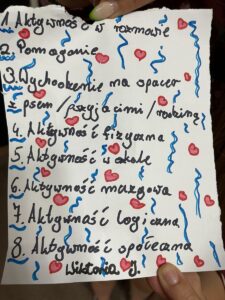 1 Aktywność w rozmowie
2. Pomaganie
3. Wychodzenie na spacer
z psem / przyjaciółmi / rodziną
4. Aktywność fizyczna
5. Aktywność w szkole
6. Aktywność mózgowa
7. Aktywność logiczna
8. Aktywność społeczna
Wiktoria J.